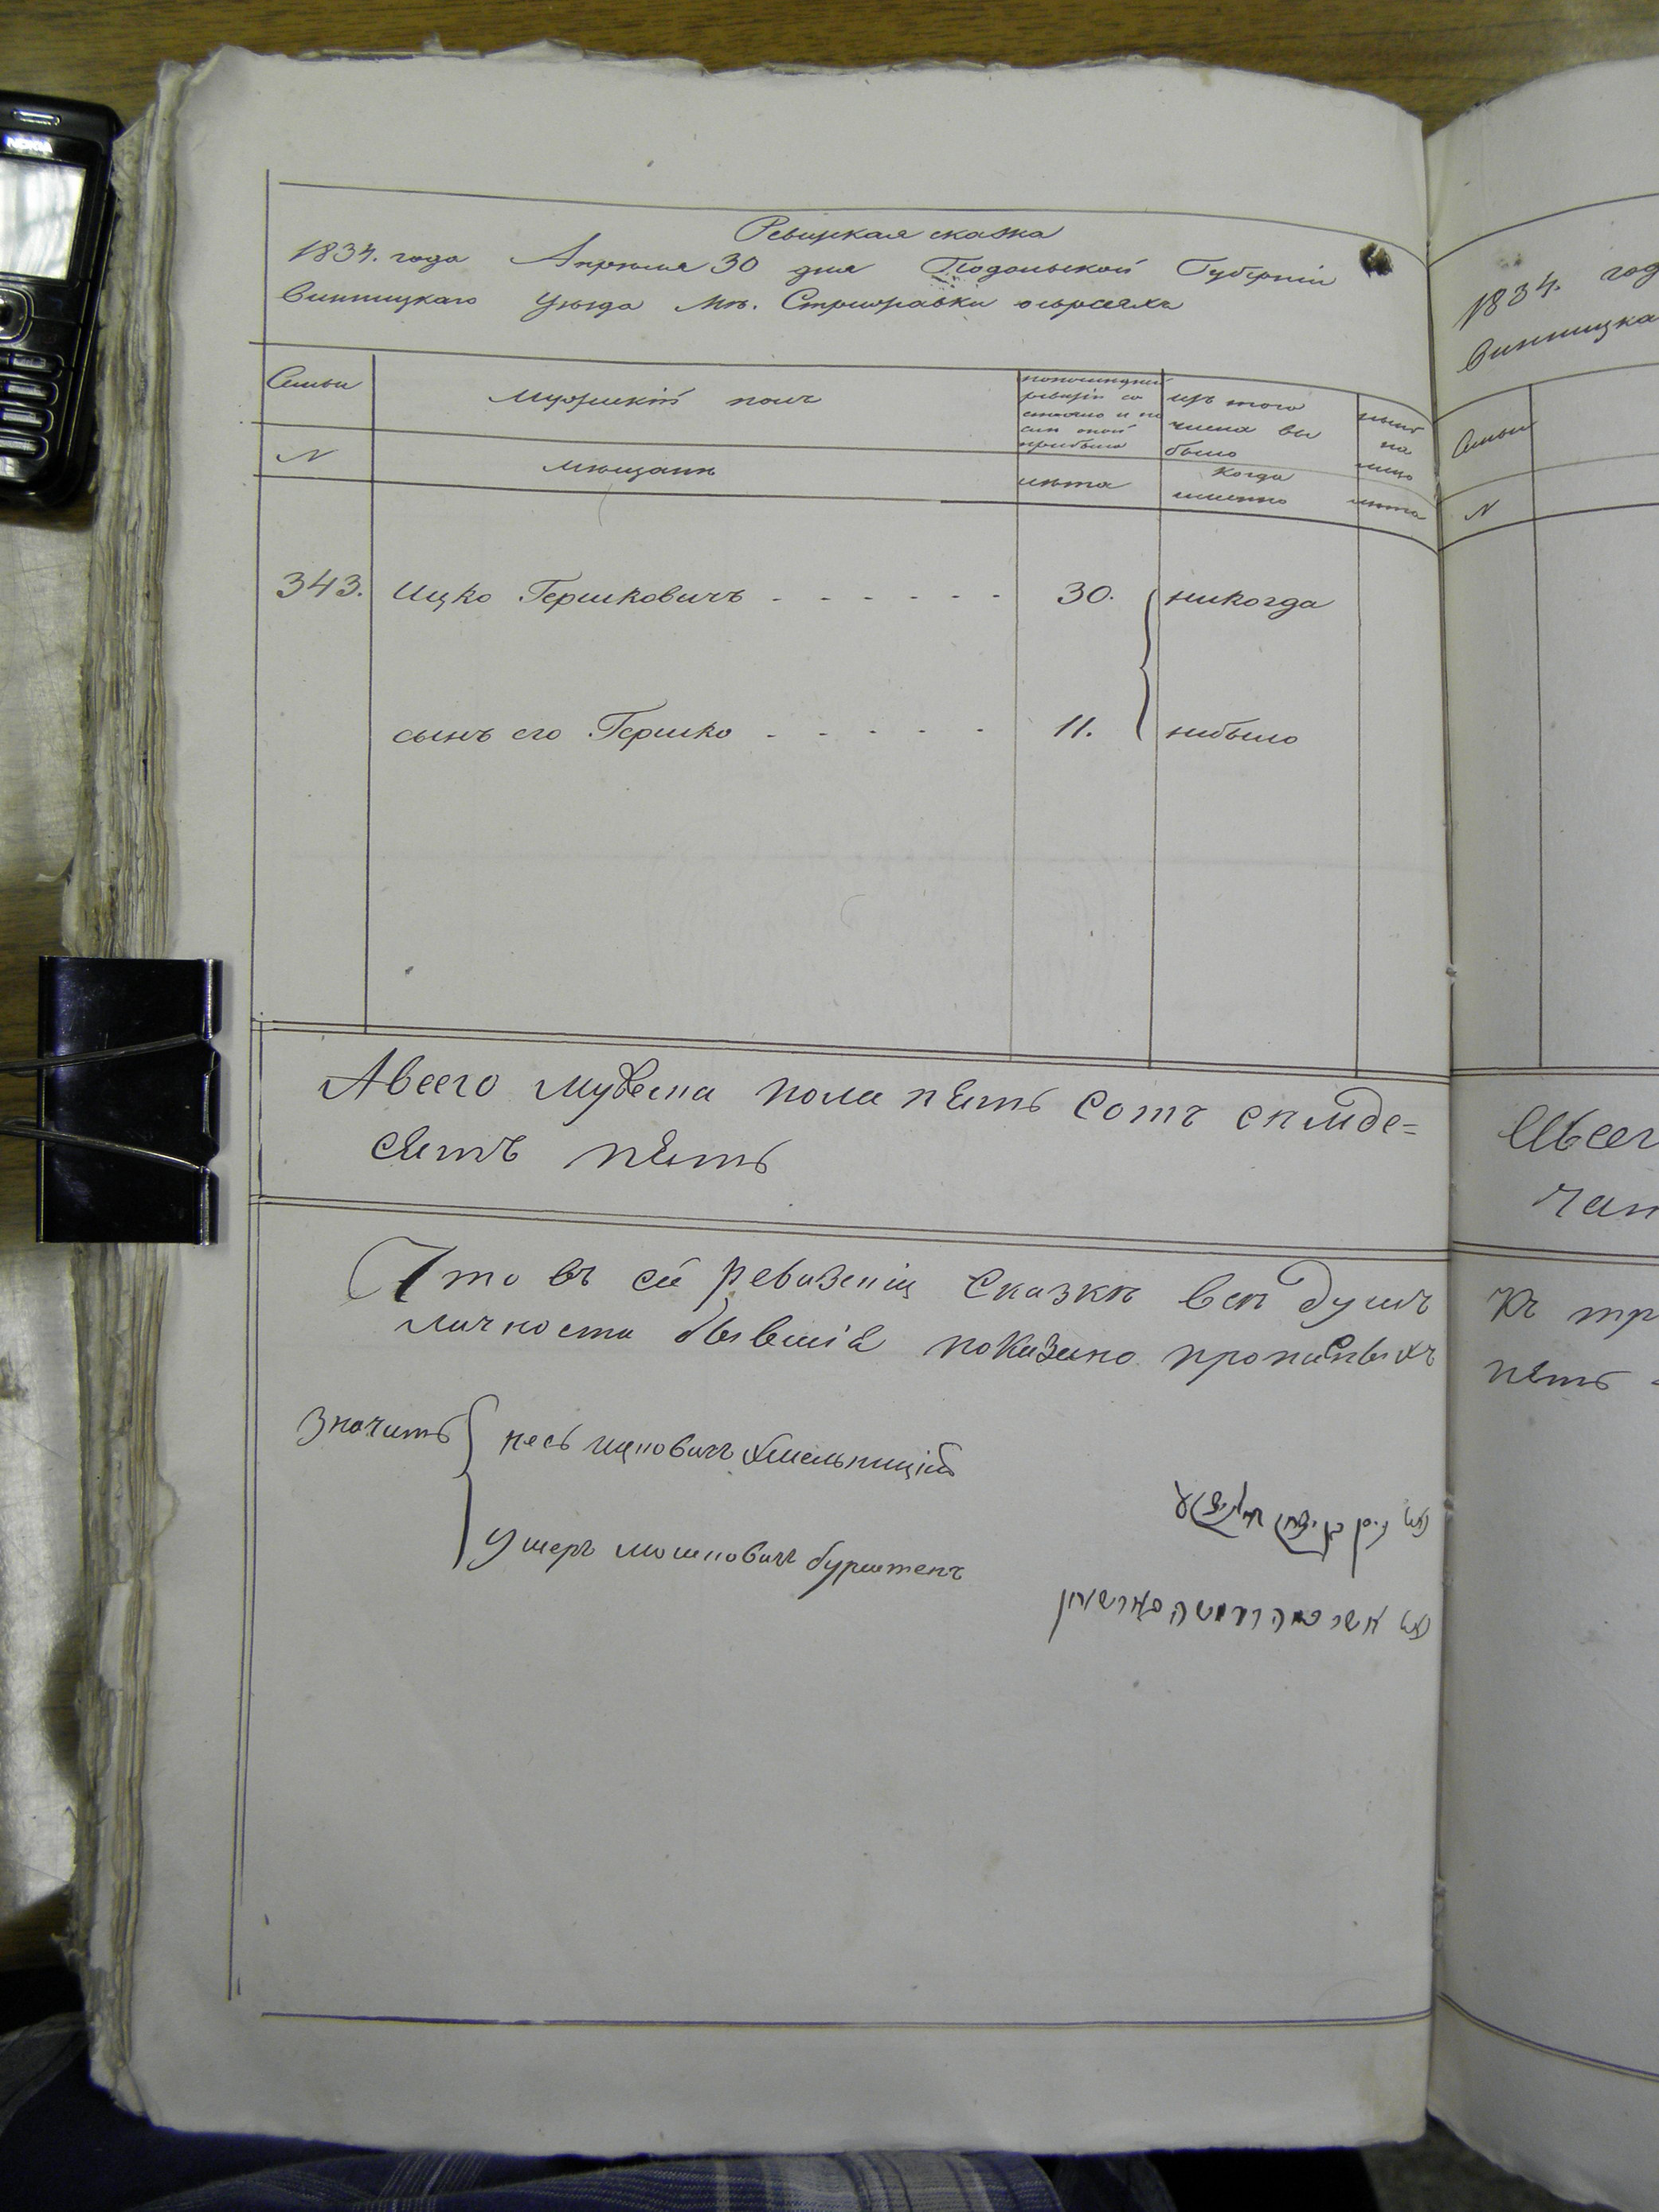 NOKIA
Ревизкая сказка
1834. года Апреля 30 дня Подольской Губерніи
Винницкаго Уезда Мѣ. Стрижавки о евреяхъ
Семьи
мужеский полъ
попоследней
ревизіи со
стояло и по
сле оной
прибыло
изъ того
числа вы
было
ныне
на
лицо
N
мещане
лета
Когда
именно
лета
343. Ицко Гершковичъ - - - - - - 30. никогда
сынъ его Гершко - - - - - 11. небыло
Авсего мужеска пола пять сотъ семде=
сятъ пять
Что въ сей ревизкіи сказкѣ всѣ души
личности бывшія показано прописныхъ
Значитъ
несь ицковичъ хмельницкій
Ушеръ мошковичъ бурштенъ
1834. год
Винницка
Семьи
N
Авсег
Къ тр
пять